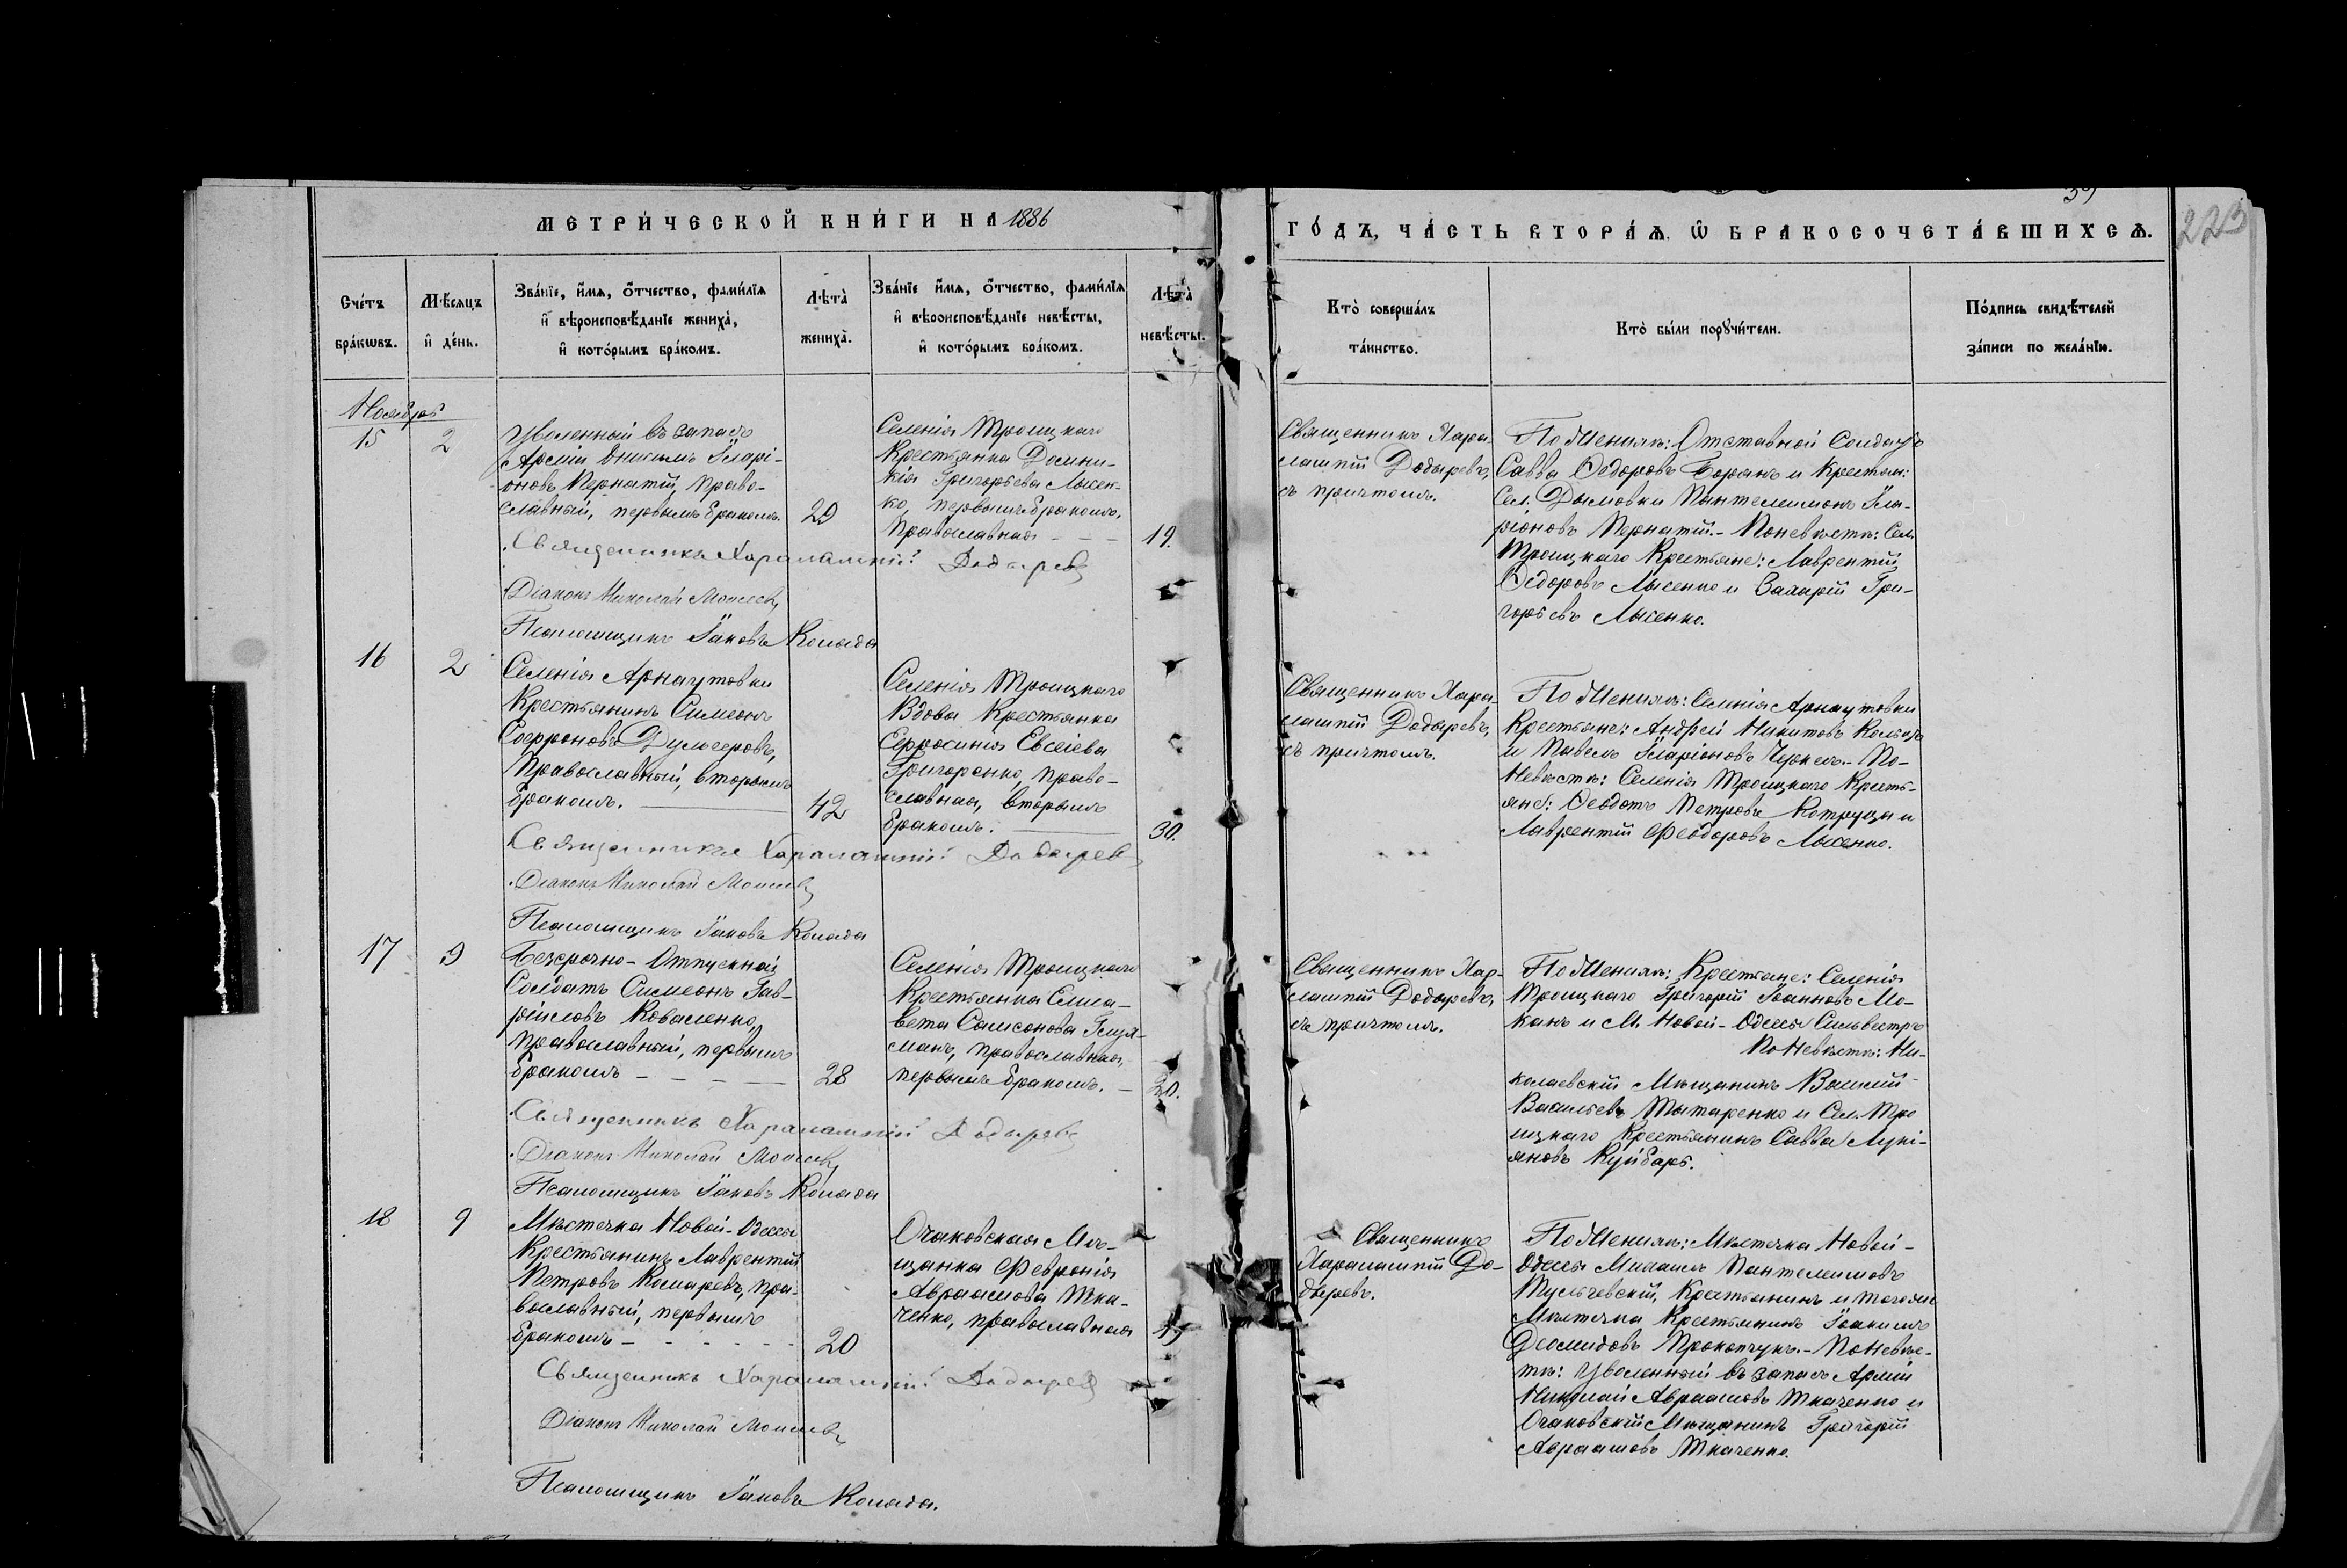 МЕТРИ́ЧЕСКОЙ КНИ́ГИ НА 1886
ГО́ДЪ, ЧА́СТЬ ВТОРА́Ѧ, Ѽ БРАКОСОЧЕТА́ВШИХСѦ.
223
Сче́тъ бра́кωвъ.
Мѣ́сяцъ и҆ де́нь.
Зва́нїе, и҆́мѧ, о҆́тчество, фами́лїѧ
и҆ вѣроисповѣ́данїе жениха̀,
и҆ кото́рымъ бра́комъ.
Лѣта̀ жениха̀.
Зва́нїе и҆́мѧ, о҆́тчество, фами́лїѧ
и҆ вѣроисповѣ́данїе невѣ́сты,
и҆ кото́рымъ бра́комъ.
Лѣта̀ невѣ́сты.
Кто̀ соверша́лъ
та́инство.
Кто̀ бы́ли порꙋчи́тели.
По́дпись свидѣ́телей
за́писи по жела́нїю.
Ноябрь
15
2
Уволенный въ запасъ
Арміи Онисимъ Иларі-
оновъ Пернатій, право-
славный, первымъ бракомъ.
29
Селенія Троицкаго
Крестьянка Домни-
кія Григорьева Лысен-
ко, первымъ бракомъ,
православная
19.
Священникъ Хара-
лампій Додыревъ,
съ причтомъ.
По Женихѣ: Отставной Солдатъ
Савва Ѳедоровъ Боранъ и Крестьян:
Сел. Дымовки Пантелеимонъ Ила-
ріоновъ Пернатій. - По невѣстѣ: Сел.
Троицкаго Крестьяне: Лаврентій
Ѳедоровъ Лысенко и Захарій Гри-
горьевъ Лысенко.
Священникъ Харалампій Додыревъ
Діаконъ Николай Моисеевъ
Псаломщикъ Іаковъ Колада
16
2
Селенія Арнаутовки
Крестьянинъ Симеонъ
Софроновъ Дульгеровъ,
Православный, вторымъ
бракомъ.
42
Селенія Троицкаго
Вдова Крестьянка
Ефросинія Евсіева
Григоренко, право-
славная, вторымъ
бракомъ.
30.
Священникъ Хара-
лампій Додыревъ,
съ причтомъ.
По Женихѣ: Селенія Арнаутовки
Крестьяне: Андрей Никитовъ
и Павелъ Иларіоновъ По
Невѣстѣ: Селенія Троицкаго Кресть-
яне: Ѳеодотъ Петровъ Котруца и
Лаврентій Феодоровъ Лысенко.
Священникъ Харалампій Додыревъ
Діаконъ Николай Моисеевъ
Псаломщикъ Іаковъ Колада
17
9
Безсрочно-Отпускной
Солдатъ Симеонъ Гав-
ріиловъ Коваленко,
православный, первымъ
бракомъ
28
Селенія Троицкаго
Крестьянка Елиса-
вета Самсонова
православная,
первымъ бракомъ.
20.
Священникъ Хар-
лампій Додыревъ,
съ причтомъ.
По Женихѣ: Крестьяне: Селенія
Троицкаго Григорій Іоанновъ Мо-
канъ и М. Новой-Одессы Сильвестръ
По Невѣстѣ: Ни-
колаевскій Мѣщанинъ Василій
Васильевъ Тытаренко и Сел. Тро
ицкаго Крестьянинъ Савва Лукі-
яновъ Куйбарь.
Священникъ Харалампій Додыревъ
Діаконъ Николай Моисеевъ
Псаломщикъ Іаковъ Колада
18
9
Мѣстечка Новой-Одессы
Крестьянинъ Лаврентій
Петровъ Комаревъ, пра-
вославный, первымъ
бракомъ
20
Очаковская Мѣ-
щанка Февронія
Авраамова Тка-
ченко, православная
Священникъ
Харалампій До-
дыревъ.
По Женихѣ: Мѣстечка Новой-
Одессы Михаилъ Пантелимовъ
Тульчевскій, Крестьянинъ и тогожъ
Мѣстечка Крестьянинъ Іоакимъ
Діомидовъ Прокопчукъ. - По Невѣс-
тѣ: Уволенный въ запасъ Арміи
Николай Авраамовъ Ткаченко и
Очаковскій Мѣщанинъ Григорій
Авраамовъ Ткаченко.
Священникъ Харалампій Додыревъ
Діаконъ Николай Моисеевъ
Псаломщикъ Іаковъ Колада.